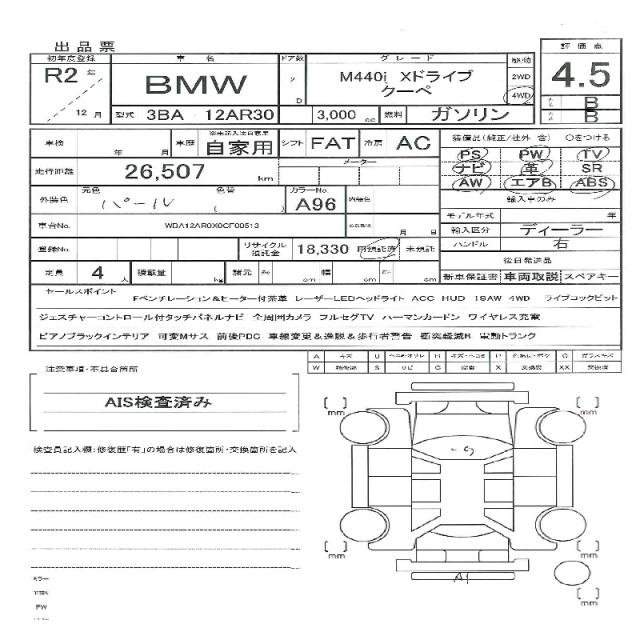 出品票
初年度登録 車名 ドア数 グレード 駆動 評価点
R2 年 12 月
BMW
2 D
M440i Xドライブ
クーペ
2WD
4WD
4.5
型式 3BA 12AR30 3,000 cc 燃料 ガソリン
B
B
車検 年 月 車歴 自家用 シフト FAT 冷房 AC
装備品(純正/社外 含) ○をつける
PS PW TV
ナビ 革 SR
AW エアB ABS
走行距離 26,507 km メーター
外装色 元色 パール 色替 カラーNo. A96 内装色
輸入車のみ
モデル年式 年
輸入区分 ディーラー
ハンドル 右
車台No. 年 月 日
登録No. リサイクル預託金 18,330 未預託
後日発送品
新車保証書 車両取説 スペアキー
定員 4 人 積載量 kg 諸元 cm cm cm
セールスポイント
Fベンチレーション&ヒーター付茶革 レーザーLEDヘッドライト ACC HUD 19AW 4WD ライブコックピット
ジェスチャーコントロール付タッチパネルナビ 全周囲カメラ フルセグTV ハーマンカードン ワイヤレス充電
ピアノブラックインテリア 可変Mサス 前後PDC 車線変更&逸脱&歩行者警告 衝突軽減B 電動トランク
A キズ U H P G ガラスキズ
W S サビ C X 交換 XX 交換済
注意事項・不具合箇所
AIS検査済み
検査員記入欄:修復歴「有」の場合は修復箇所・交換箇所を記入
mm
mm
mm
mm
mm
A1
PW